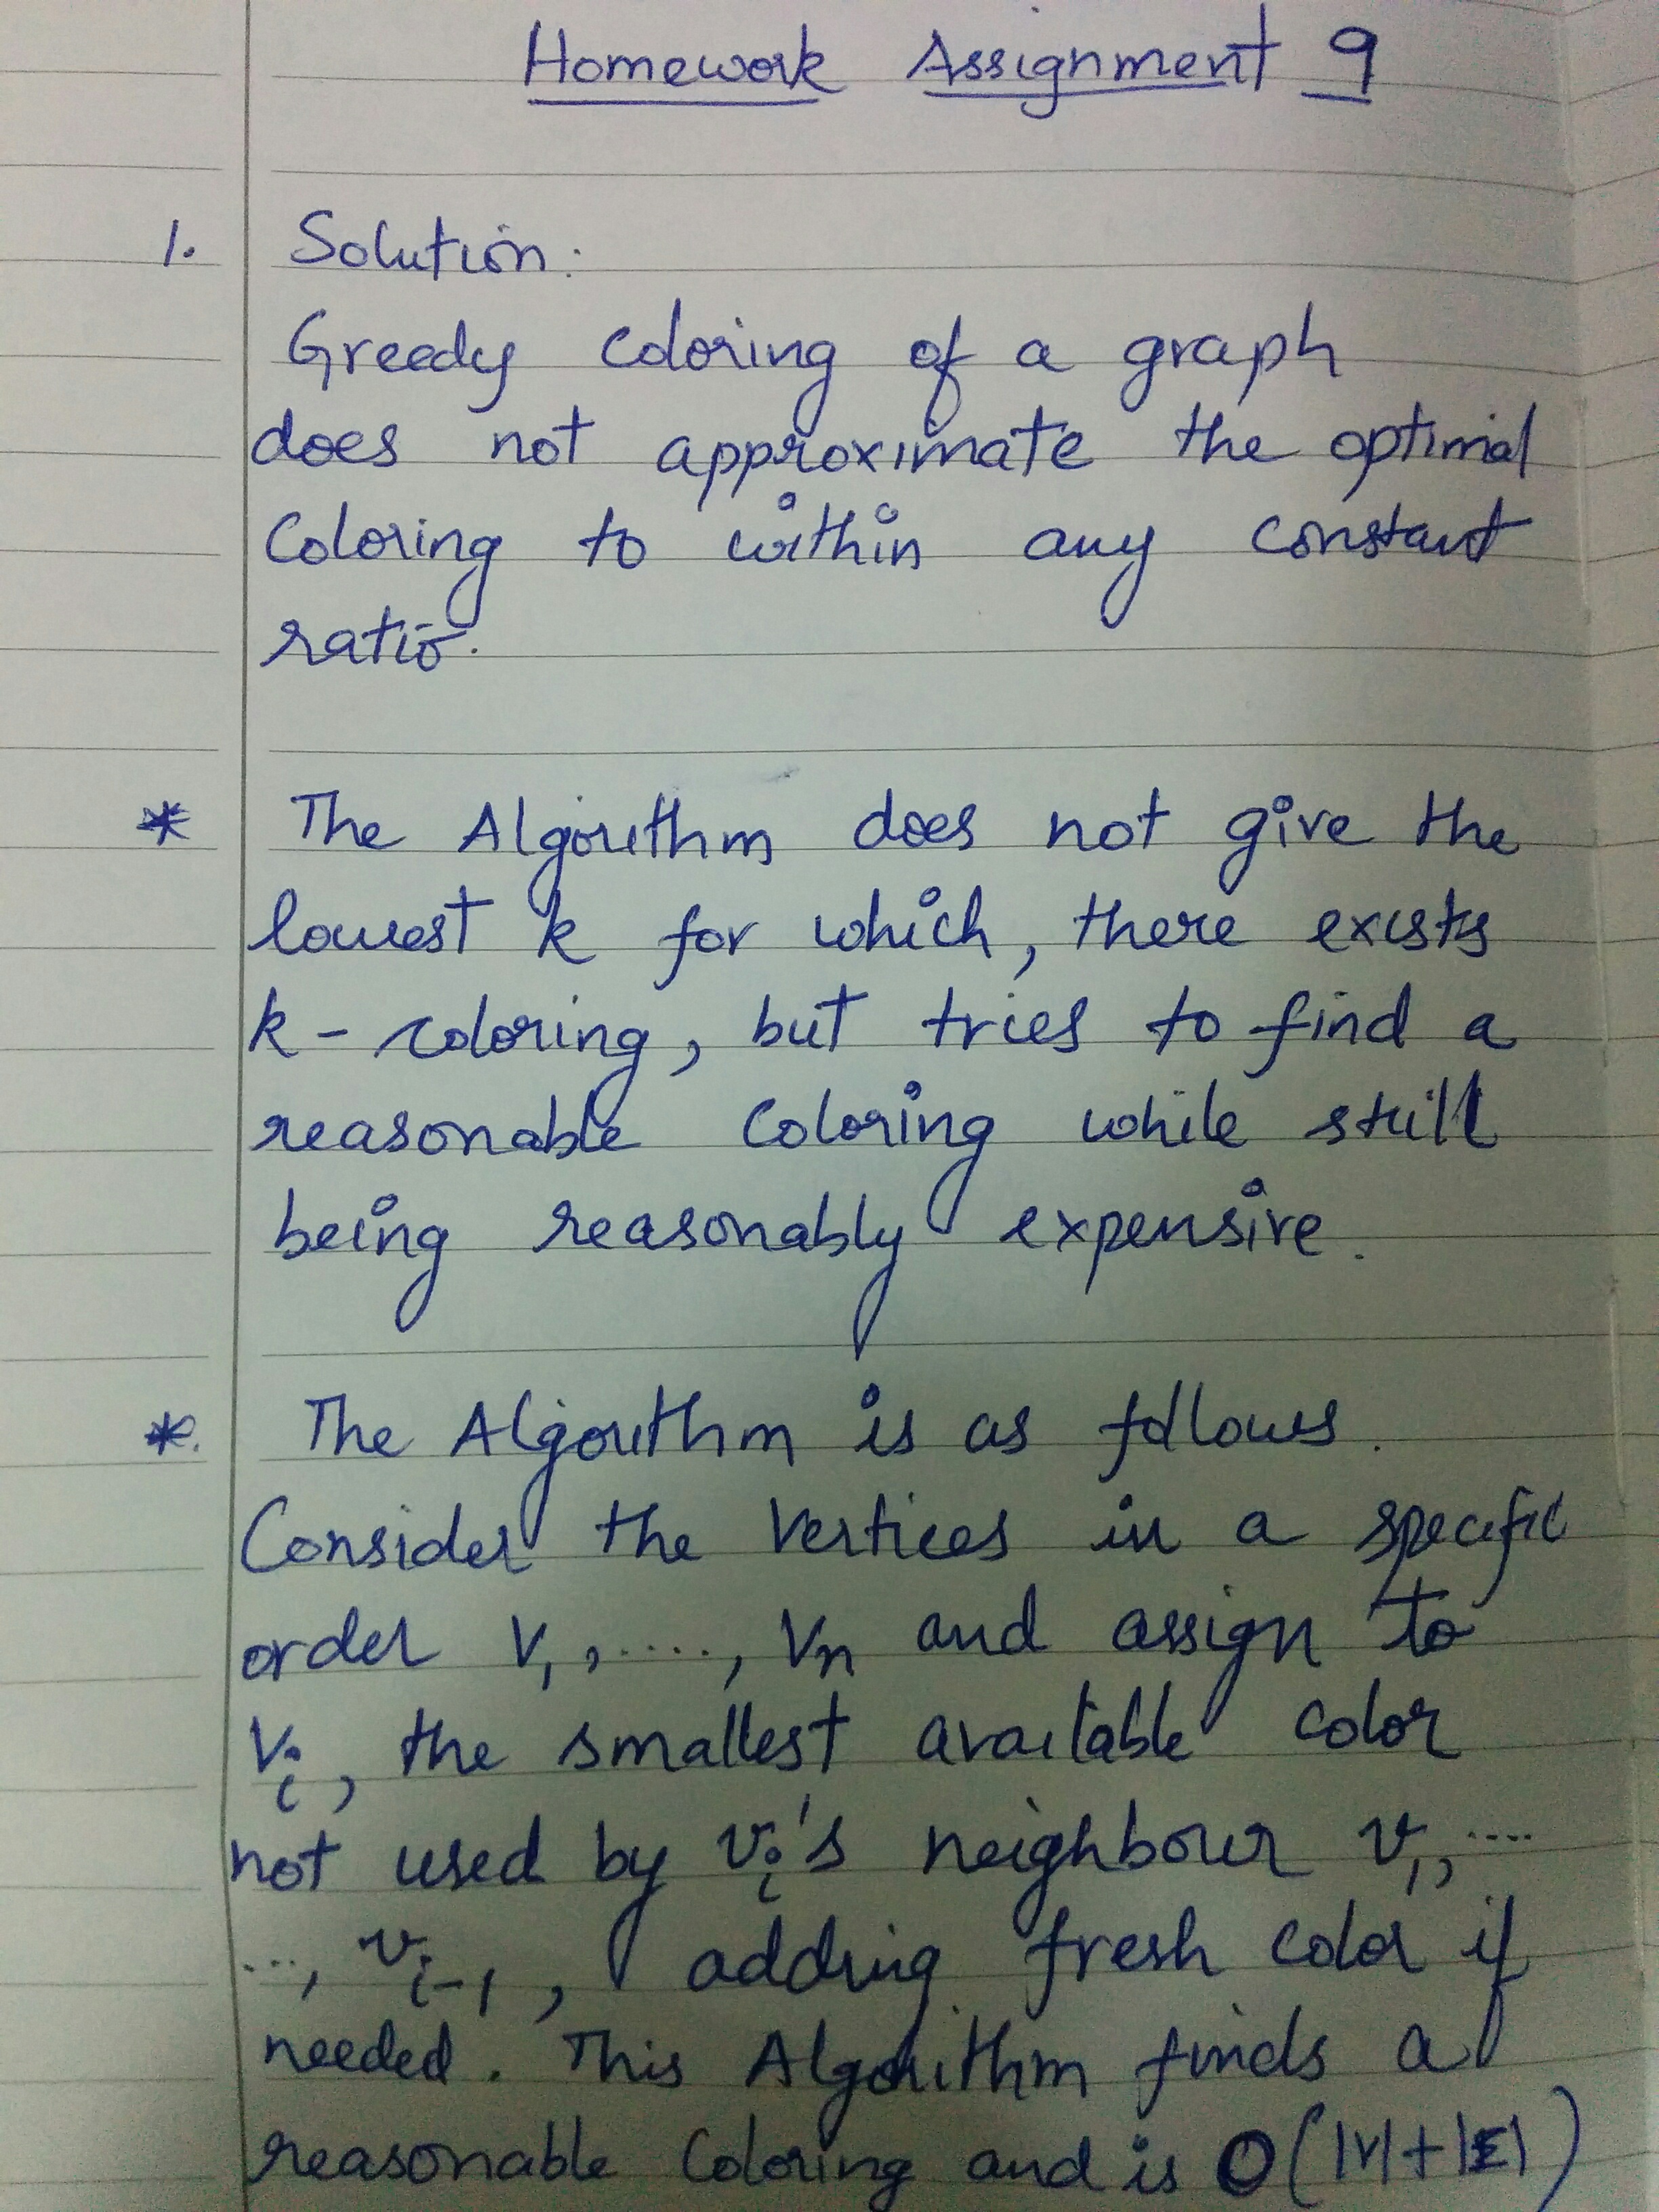 Homework Assignment 9
1. Solution:
Greedy coloring of a graph
does not approximate the optimal
Coloring to within any constant
ratio.
* The Algorithm does not give the
lowest k for which, there exists
k - coloring, but tries to find a
reasonable coloring while still
being reasonably expensive.
*. The Algorithm is as follows.
Consider the vertices in a specific
order V₁, ...., Vn and assign to
Vi, the smallest available color
not used by vi's neighbour v₁, ....
..., vi-1, adding fresh color if
needed. This Algorithm finds a
reasonable Coloring and is O(|V|+|E|)